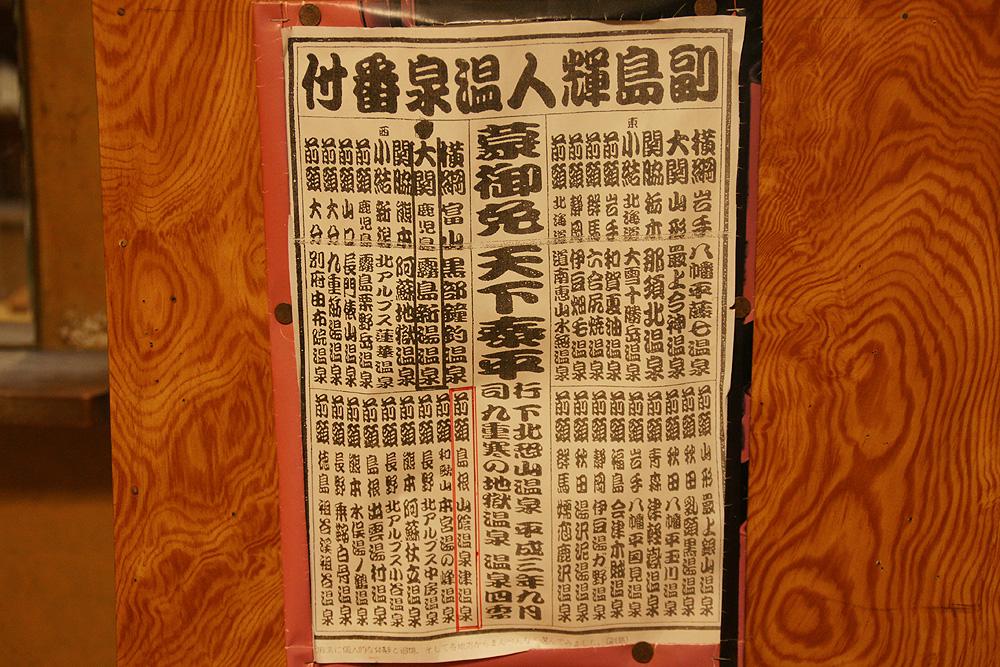 副島輝人温泉番付
東
横綱 岩手 八幡平藤七温泉
大関 山形 最上今神温泉
関脇 栃木 那須北温泉
小結 北海道 大雪十勝岳温泉
前頭 岩手 和賀夏油温泉
前頭 群馬 六合尻焼温泉
前頭 静岡 伊豆畑毛温泉
前頭 北海道 道南恵山水無温泉
前頭 山形 最上銀山温泉
前頭 秋田 乳頭黒湯温泉
前頭 秋田 八幡平玉川温泉
前頭 青森 津軽嶽温泉
前頭 岩手 八幡平国見温泉
前頭 福島 会津木賊温泉
前頭 静岡 伊豆湯ガ野温泉
前頭 秋田 湯沢泥湯温泉
前頭 群馬 嬬恋鹿沢温泉
蒙御免 天下泰平
行司
下北恐山温泉 平成三年九月
九重寒の地獄温泉 温泉四季
西
横綱 富山 黒部鐘釣温泉
大関 鹿児島 霧島新湯温泉
関脇 熊本 阿蘇地獄温泉
小結 新潟 北アルプス蓮華温泉
前頭 鹿児島 霧島栗野岳温泉
前頭 山口 長門俵山温泉
前頭 大分 九重筋湯温泉
前頭 大分 別府由布院温泉
前頭 島根 山陰温泉津温泉
前頭 和歌山 本宮湯の峰温泉
前頭 長野 北アルプス中房温泉
前頭 熊本 阿蘇杖立温泉
前頭 長野 北アルプス小谷温泉
前頭 島根 出雲湯村温泉
前頭 熊本 水俣湯ノ鶴温泉
前頭 長野 乗鞍白骨温泉
前頭 徳島 祖谷渓祖谷温泉